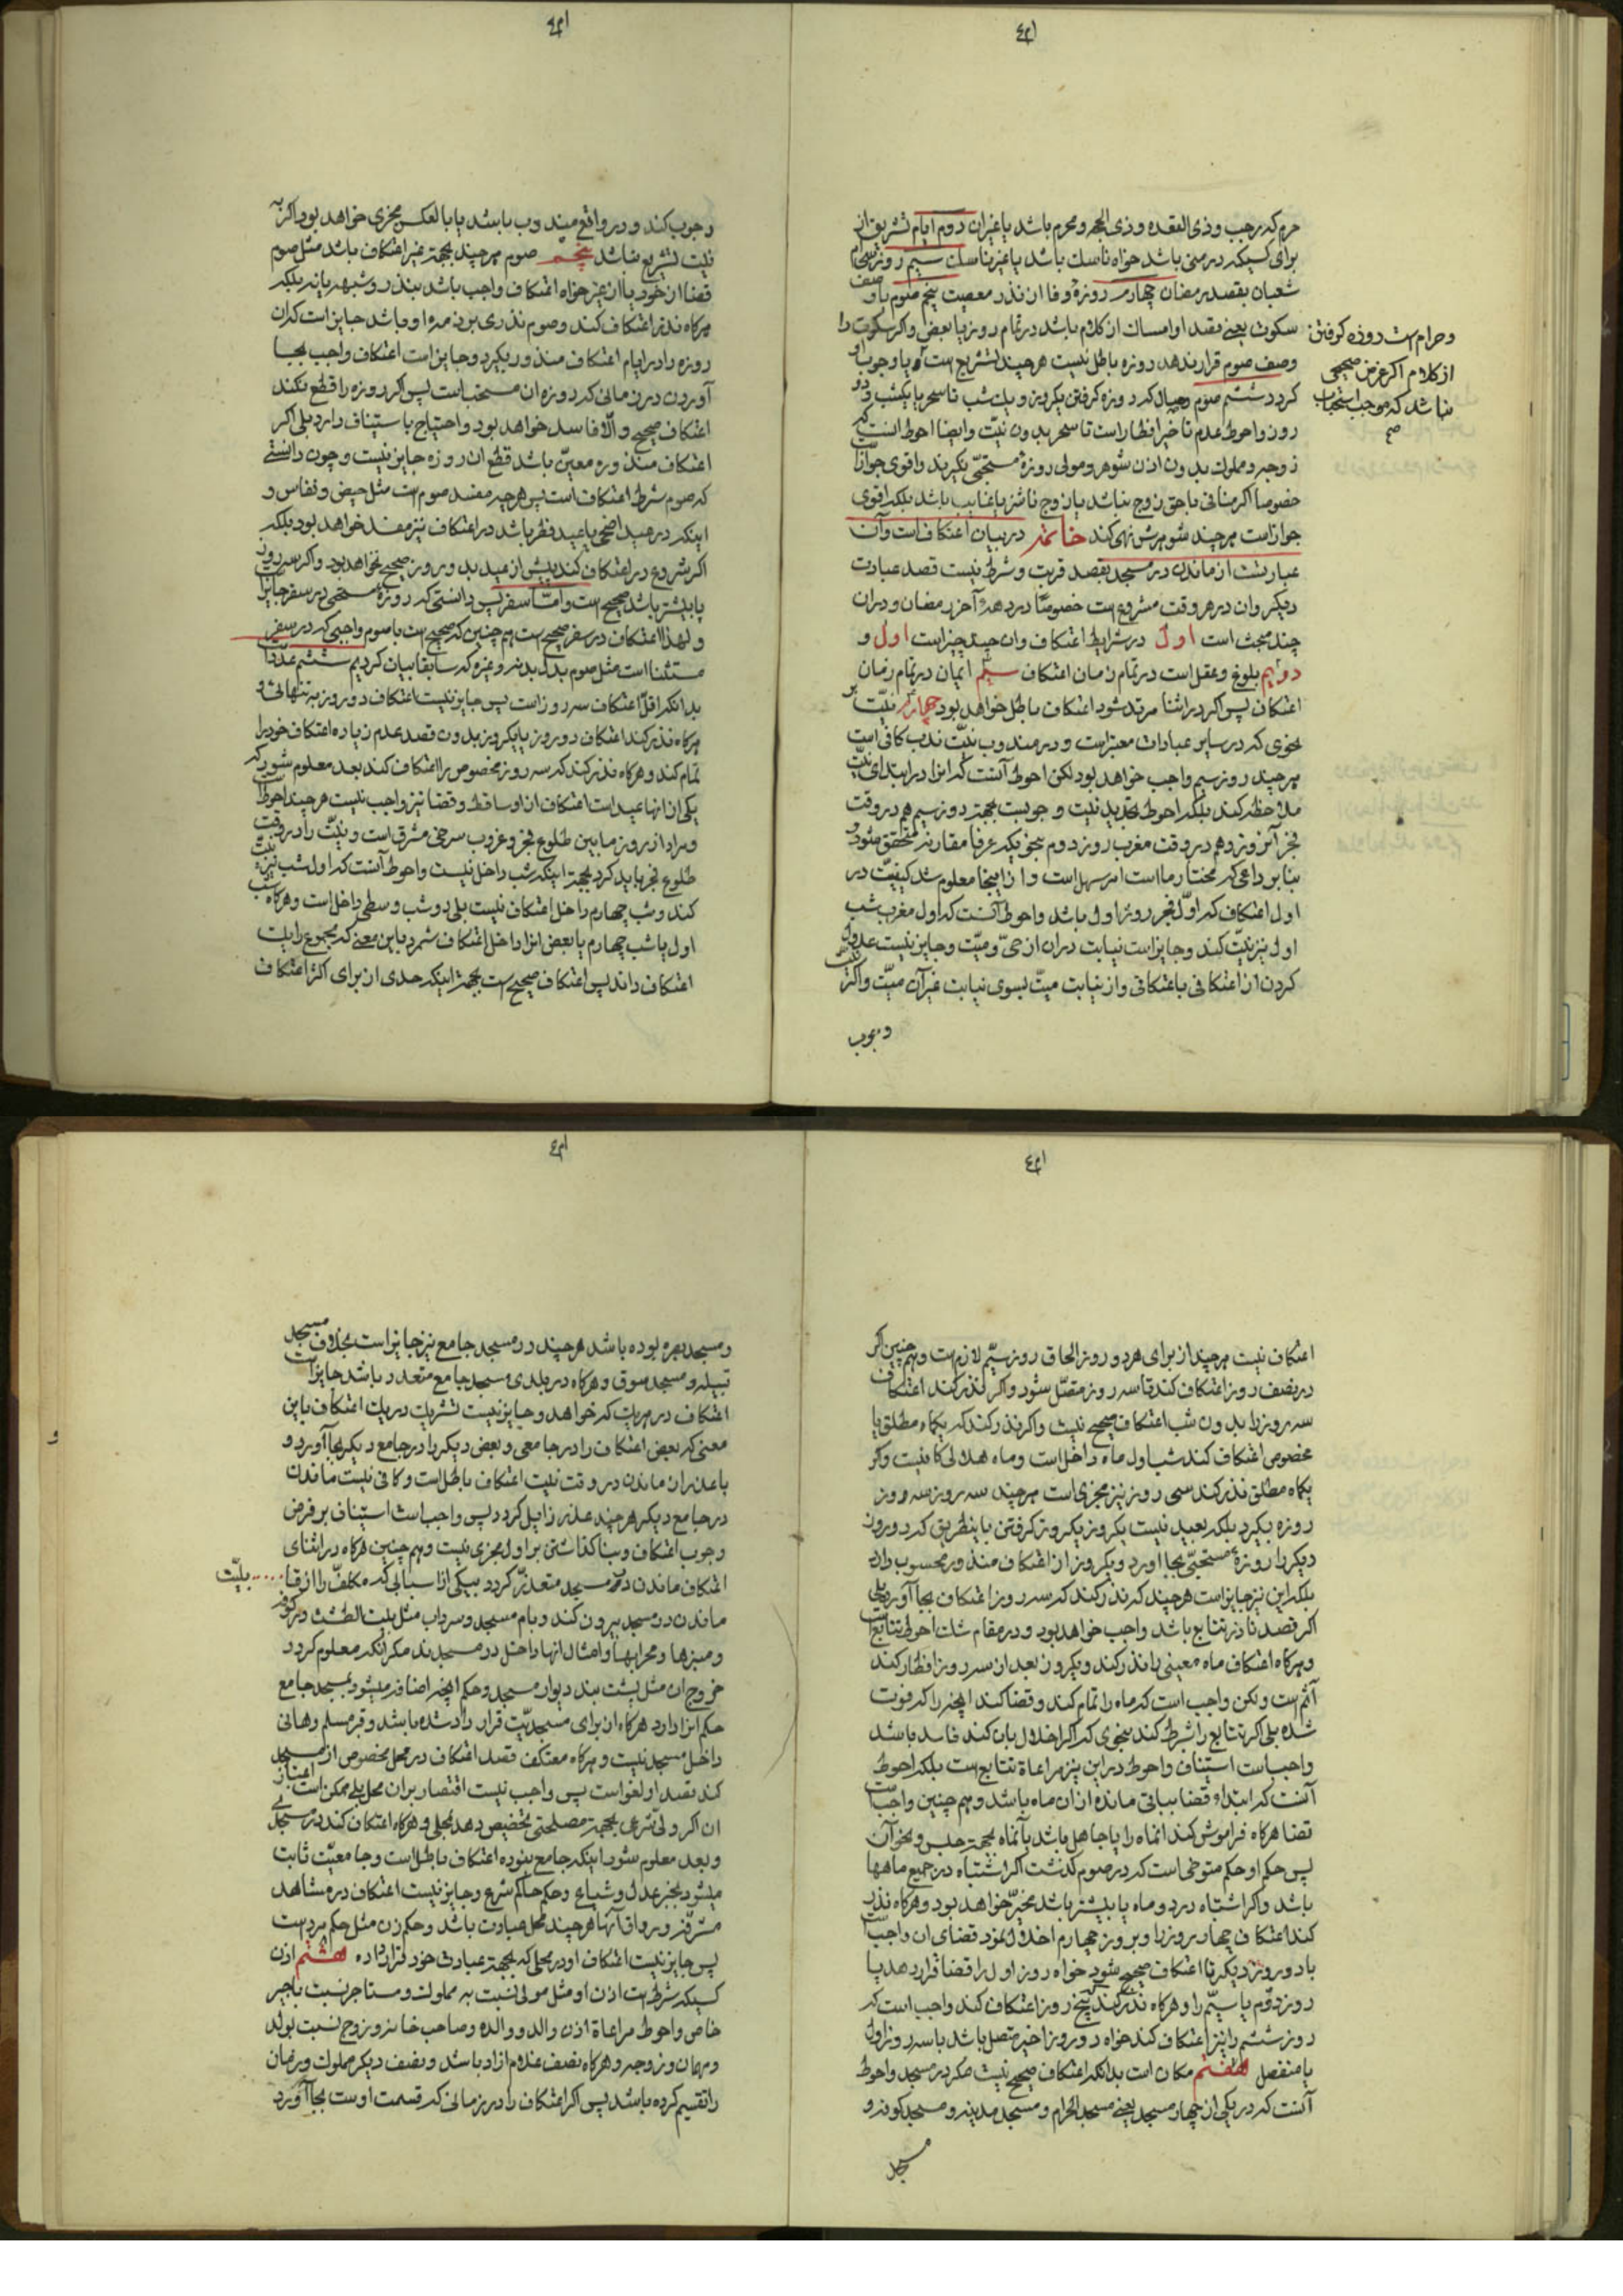 حرم که رجب و ذی القعده و ذی الحجه و محرم باشد یا غیر ان دوم ایام تشریق از
برای کسیکه در منی باشد خواه ناسک باشد یا غیر ناسک سیم روزه سی ام
شعبان بقصد رمضان چهارم روزه وفا ان نذر معصیت پنجم صوم با وصف
سکوت یعنی مقید او امساک از کلام باشد در تمام روز یا بعض و اگر سکوت را
وصف صوم قرار ندهد روزه باطل نیست هر چند تشریع است و یا وجوب او
وحرامست روزه کرفتن
از کلام اکر غرض صحیحی
نباشد که موجب استحباب
کردد ششم صوم وصال که روزه کرفتن یکروز و یک شب تا سحر یا یکشب و دو
روز و احوط عدم تاخیر افطار است تا سحر بدون نیت و ایضا احوط انست که
زوجه و مملوک بدون اذن شوهر و مولی روزهٔ مستحبّی نگیرند و اقوی جواز است
خصوصا اکر منافی با حق زوج نباشد یا زوج ناشز یا غایب باشد بلکه اقوی
جواز است هر چند شوهرش نهی کند خاتمه در بیان اعتکاف است و آن
عبارتست از ماندن در مسجد بقصد قربت و شرط نیست قصد عبادت
دیکر و ان در هر وقت مشروع است خصوصًا در دههٔ آخر رمضان و در ان
چند مبحث است اول در شرایط اعتکاف و ان چند چیز است اول و
دویم بلوغ و عقل است در تمام زمان اعتکاف سیم ایمان در تمام زمان
اعتکاف پس اکر در اثنا مرتد شود اعتکاف باطل خواهد بود چهارم نیّت بر
نحوی که در سایر عبادات معتبر است و در مندوب نیّت ندب کافی است
هر چند روز سیم واجب خواهد بود لکن احوط آنست که انرا در ابتدای نیّت
ملاحظه کند بلکه احوط تجدید نیّت و جوبست بجهة روز سیم هم در وقت
فجر آنروز و هم در وقت مغرب روز دوم بنحویکه عرفا مقارنه متحقق شود و
بنا بر داعی که مختار ما است امر سهل است و از اینجا معلوم شد کیفیّت در
اول اعتکاف که اوّل فجر روز اول باشد و احوط آنست که اول مغرب شب
اول نیز نیّت کند و جایز است نیابت در ان از حیّ و میّت و جایز نیست عدول
کردن از اعتکافی باعتکافی و از نیابت میّت بسوی نیابت غیر آن میّت و اکر نیت
وجوب
وجوب کند و در واقع مندوب باشد یا بالعکس مجزی خواهد بود اکر به
نیت تشریع نباشد پنجم صوم هر چند بجهة غیر اعتکاف باشد مثل صوم
قضا از خود یا از غیر خواه اعتکاف واجب باشد بنذر و شبهه یا نه بلکه
هرکاه نذر اعتکاف کند و صوم نذری بر ذمهٔ او باشد جایز است که ان
روزه را در ایام اعتکاف منذور بگیرد و جایز است اعتکاف واجب بجا
آوردن در زمانی که روزه ان مستحب است پس اکر روزه را قطع نکند
اعتکاف صحیح و الّا فاسد خواهد بود و احتیاج باستیناف دارد بلی اکر
اعتکاف منذوره معیّن باشد قطع ان روزه جایز نیست و چون دانستی
که صوم شرط اعتکاف است پس هر چه مفسد صوم است مثل حیض و نفاس و
اینکه در عید اضحی یا عید فطر باشد در اعتکاف نیز مفسد خواهد بود بلکه
اکر شروع در اعتکاف کند پیش از عید بدو روز صحیح نخواهد بود و اکر سه روز
یا بیشتر باشد صحیح است و امّا سفر پس دانستی که روزهٔ مستحبی در سفر جایز است
و لهذا اعتکاف در سفر صحیح است هم چنین که صحیح است با صوم واجبی که در سفر
مستثنا است مثل صوم بدل بدنه و غیره که سابقا بیان کردیم ششم عدد است
بدانکه اقلّ اعتکاف سه روز است پس جایز نیست اعتکاف دو روز به تنهائی و
هرکاه نذر کند اعتکاف دو روز یا یکروز بدون قصد عدم زیاده اعتکاف خود را
تمام کند و هرکاه نذر کند که سه روز مخصوص را اعتکاف کند بعد معلوم شود که
یکی از انها عید است اعتکاف از او ساقط و قضا نیز واجب نیست هر چند احوط است
و مراد از روز ما بین طلوع فجر و غروب سرخی مشرق است و نیّت را در وقت
طلوع فجر باید کرد بجهة اینکه شب داخل نیست و احوط آنست که اول شب نیز نیت
کند و شب چهارم داخل اعتکاف نیست بلی دو شب وسطی داخل است و هرکاه شب
اول یا شب چهارم یا بعض انرا داخل اعتکاف شمرد باین معنی که مجموع را یک
اعتکاف داند پس اعتکاف صحیح است بجهة اینکه حدی از برای اکثر اعتکاف
اعتکاف نیست هر چند از برای هر دو روز الحاق روز سیّم لازم است و هم چنین اکر
در نصف روز اعتکاف کند تا سه روز متصّل شود و اکر نذر کند اعتکاف
سه روز را بدون شب اعتکاف صحیح نیست و اکر نذر کند که یکماه مطلق یا
مخصوص اعتکاف کند شب اول ماه داخل است و ماه هلالی کافیست و اکر
یکماه مطلق نذر کند سی روز نیز مجزی است هر چند سه روز سه روز
روزه بگیرد بلکه بعید نیست یکروز یکروز کرفتن باینطریق که دو روز
دیگر را روزهٔ مستحبّی بجا آورد و یکروز از اعتکاف منذور محسوب دارد
بلکه این نیز جایز است هر چند که نذر کند که سه روز اعتکاف بجا آورد بلی
اکر قصد ناذر تتابع باشد واجب خواهد بود و در مقام شک احوط تتابع است
و هرکاه اعتکاف ماه معینی را نذر کند و یکروز بعد از سه روز افطار کند
آثم است و لکن واجب است که ماه را تمام کند و قضا کند انچه را که فوت
شده بلی اکر تتابع را شرط کند بنحوی که اکر اخلال بان کند فاسد باشد
واجب است استیناف و احوط در این نیز مراعاة تتابع است بلکه احوط
آنست که ابتداء قضا بباقی مانده از ان ماه باشد و هم چنین واجب است
قضا هرکاه فراموش کند انماه را یا جاهل باشد بآنماه بجهة حبس و نحو آن
پس حکم او حکم متوخی است که در صوم کذشت اکر اشتباه در جمیع ماهها
باشد و اکر اشتباه در دو ماه یا بیشتر باشد مخیّر خواهد بود و هرکاه نذر
کند اعتکاف چهار روز را و بروز چهارم اخلال نمود قضای ان واجب است
با دو روز دیکر تا اعتکاف صحیح شود خواه روز اول را قضا قرار دهد یا
روز دوّم یا سیّم را و هرکاه نذر کند پنج روز اعتکاف کند واجب است که
روز ششم را نیز اعتکاف کند خواه دو روز اخیر متصل باشد با سه روز اول
یا منفصل هفتم مکان است بدانکه اعتکاف صحیح نیست مکر در مسجد و احوط
آنست که در یکی از چهار مسجد یعنی مسجد الحرام و مسجد مدینه و مسجد کوفه و
مسجد
و مسجد بصره بوده باشد هر چند در مسجد جامع نیز جایز است بخلاف مسجد
قبیله و مسجد سوق و هرکاه در بلدی مسجد جامع متعدد باشد جایز است
اعتکاف در هر یک که خواهد و جایز نیست تشریک در یک اعتکاف باین
معنی که بعض اعتکاف را در جامعی و بعض دیکر را در جامع دیکر بجا آورد و
با عذر از ماندن در وقت نیت اعتکاف باطل است و کافی نیست ماندن
در جامع دیکر هر چند عذر زایل کردد پس واجب است استیناف بر فرض
وجوب اعتکاف و بنا کذاشتن بر اول مجزی نیست و هم چنین هرکاه در اثنای
اعتکاف ماندن در مسجد متعذّر کردد بیکی از اسبابی که مکلّف را از قابلیّت
ماندن در مسجد بیرون کند و بام مسجد و سرداب مثل بیت الطشت در کوفه
و منبرها و محرابها و امثال انها داخل در مسجدند مکر آنکه معلوم کردد
خروج ان مثل پشت بند دیوار مسجد و حکم انچه اضافه میشود بمسجد جامع
حکم انرا دارد هرکاه ان برای مسجدیّت قرار داده شده باشد و قبر مسلم و هانی
داخل مسجد نیست و هرکاه معتکف قصد اعتکاف در محل مخصوص از مسجد
کند قصد او لغو است پس واجب نیست اقتصار بران محل بلی ممکن است اعتبار
ان اکر ولیّ شرعی بجهة مصلحتی تخصیص دهد بمحلی و هرکاه اعتکاف کند در مسجدی
و بعد معلوم شود اینکه جامع نبوده اعتکاف باطل است و جامعیّت ثابت
میشود بخبر عدل و شیاع و حکم حاکم شرع و جایز نیست اعتکاف در مشاهد
مشرّفه و رواق آنها هر چند محل عبادت باشد و حکم زن مثل حکم مرد است
پس جایز نیست اعتکاف او در محلی که بجهة عبادت خود قرار داده هشتم اذن
کسیکه شرط است اذن او مثل مولی نسبت به مملوک و مستاجر نسبت باجیر
خاص و احوط مراعاة اذن والد و والده و صاحب خانه و زوج نسبت بولد
و مهمان و زوجه و هرکاه نصف غلام ازاد باشد و نصف دیکر مملوک و زمان
را تقسیم کرده باشد پس اکر اعتکاف را در زمانی که قسمت اوست بجا آورد